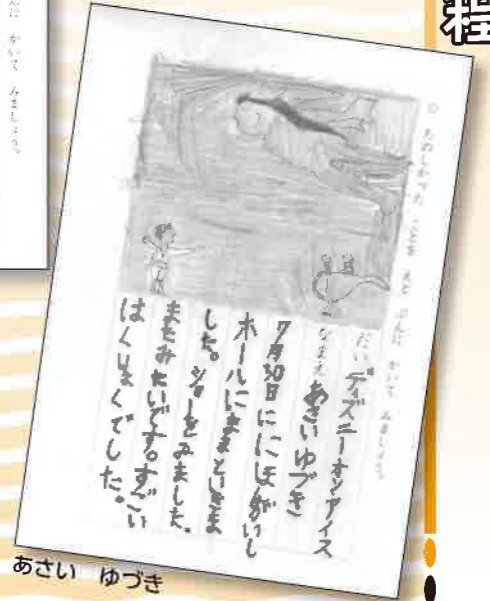 程
○ たのしかった ことを えと ぶんに かいて みましょう。
だい ディズニーオンアイス
なまえ あさいゆづき
7月30日ににほんがいし
ホールにままといきま
した。ショーをみました。
またみたいです。すごい
はくりょくでした。
かいて みましょう。
あさい ゆづき